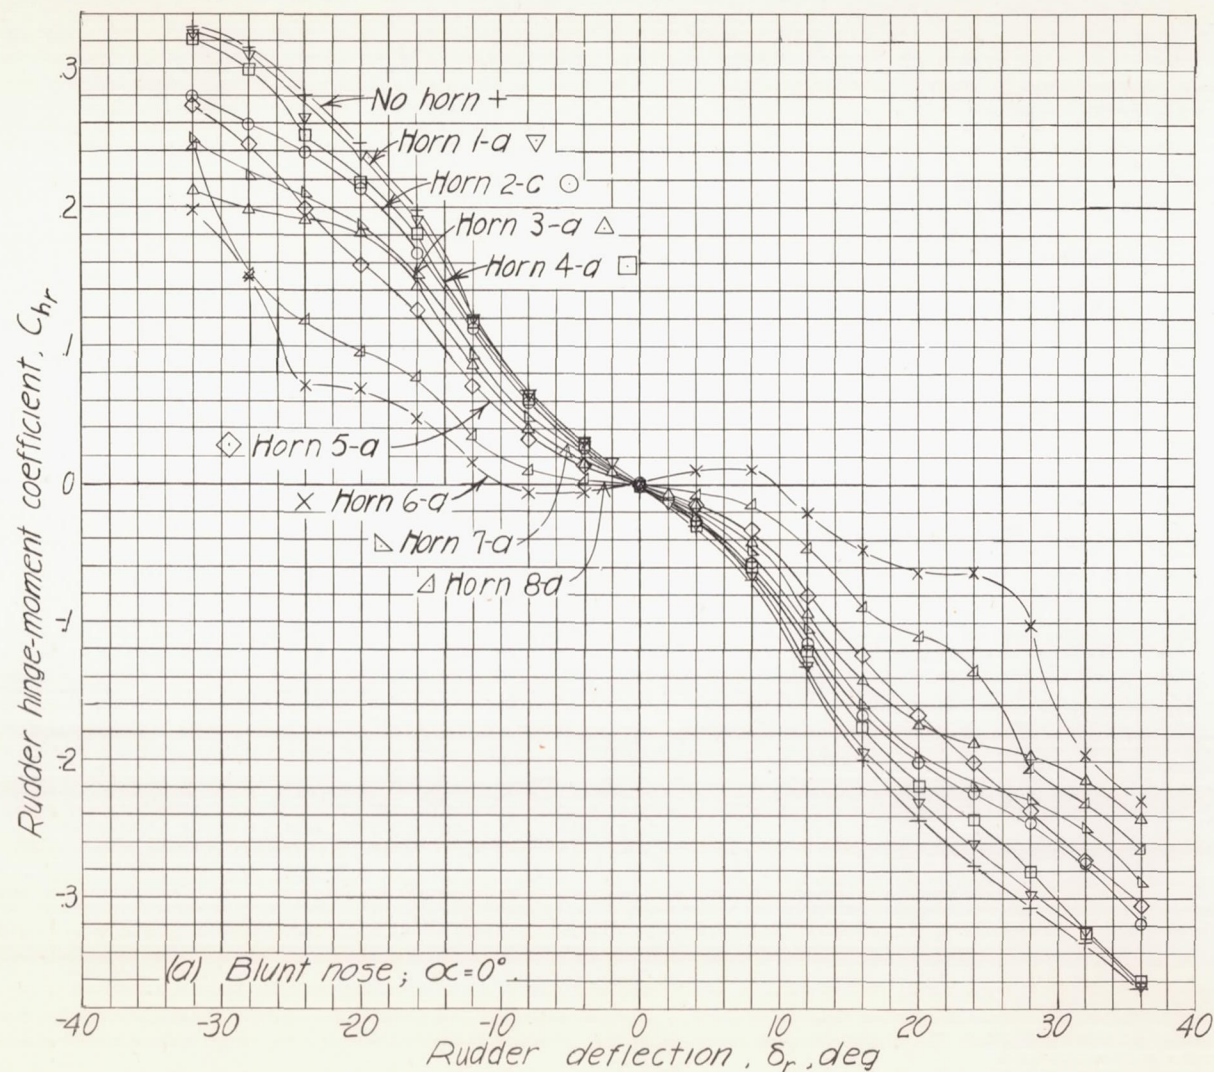 .3
.2
.1
0
-.1
-.2
-.3
Rudder hinge-moment coefficient, Chr
No horn +
Horn 1-a ▽
Horn 2-c ⊙
Horn 3-a △
Horn 4-a □
◇ Horn 5-a
× Horn 6-a
◺ Horn 7-a
◿ Horn 8-a
(a) Blunt nose; α=0°.
-40 -30 -20 -10 0 10 20 30 40
Rudder deflection, δr, deg